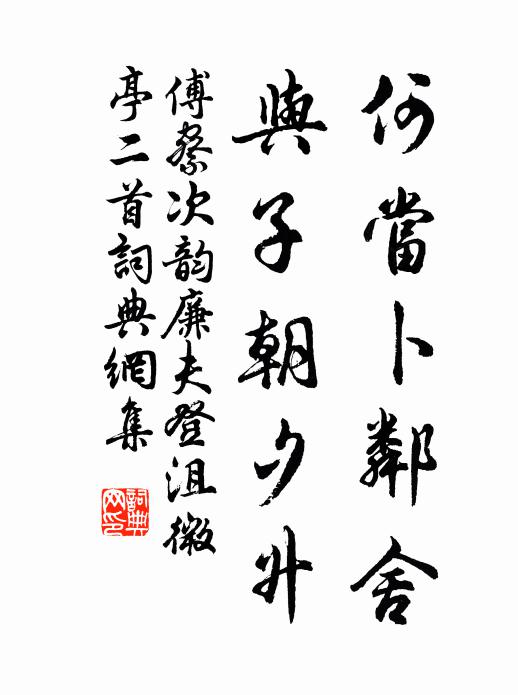 何當卜鄰舍
與子朝夕升
傅察次韵廉夫登沮微
亭二首詞典網集
詞典网印